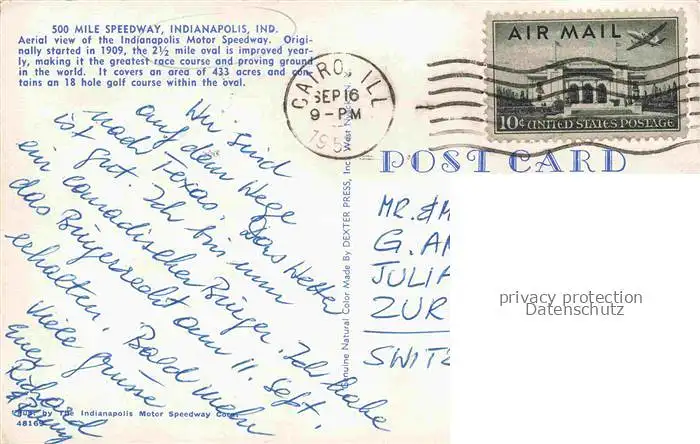 500 MILE SPEEDWAY, INDIANAPOLIS, IND.
Aerial view of the Indianapolis Motor Speedway. Origi-
nally started in 1909, the 2½ mile oval is improved year-
ly, making it the greatest race course and proving ground
in the world. It covers an area of 433 acres and con-
tains an 18 hole golf course within the oval.
Wir sind
auf dem Wege
nach Texas. Das Wetter
ist gut. Ich bin nun
ein canadischer Bürger. Ich habe
das Bürgerrecht am 11. Sept.
erhalten. Bald mehr
Viele grüsse
Euer
Richard
Pub. by The Indianapolis Motor Speedway Corp.
48169
Genuine Natural Color Made By DEXTER PRESS, Inc. West Nyack,
CAIRO, ILL
SEP 16
9 - PM
195
AIR MAIL
10¢ UNITED STATES POSTAGE
POST CARD
MR. &
G. A
JULIA
ZUR
SWITZ
privacy protection
Datenschutz